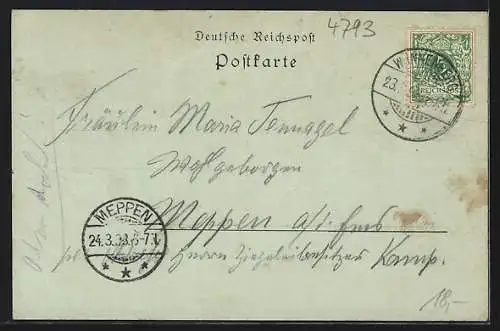 4793
Deutsche Reichspost
Postkarte
23.
REICHSPOST
Fräulein Maria Tennagel
Wohlgeboren
Meppen a/Ems
MEPPEN
24.3.98.6-7
Herrn Ziegeleibesitzer Kamp.
18,-